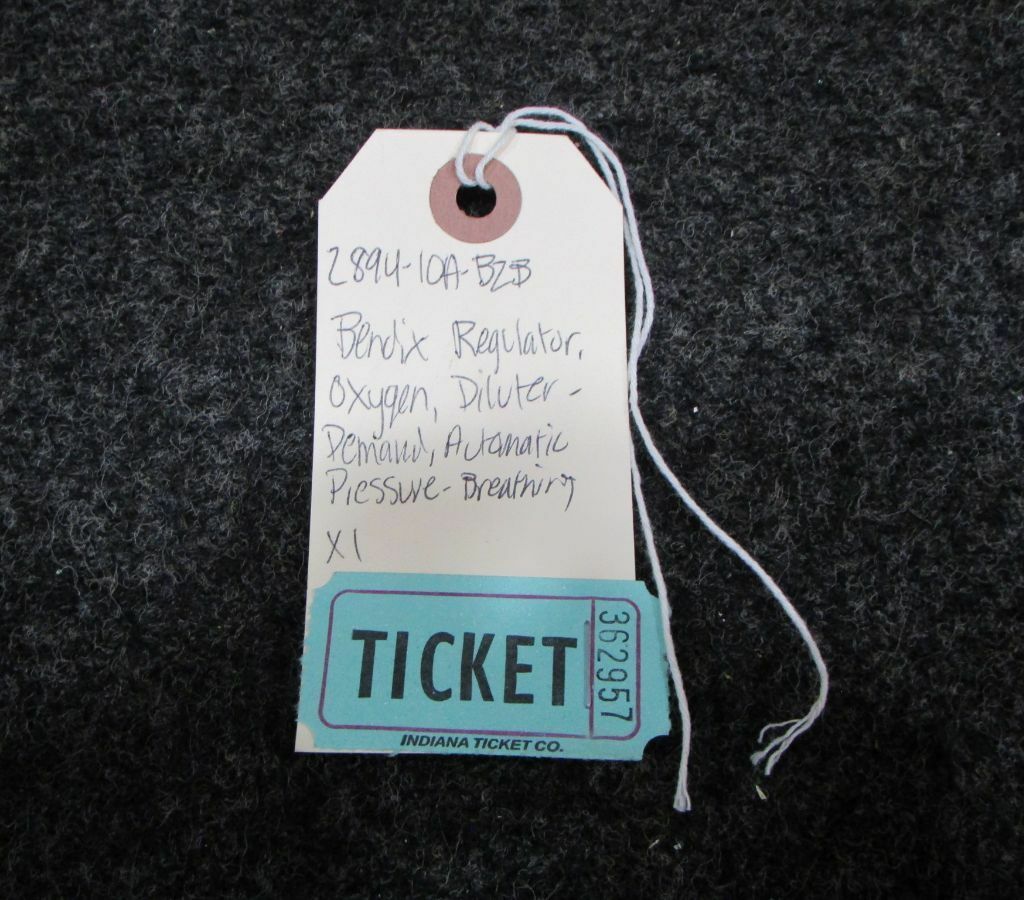 2894-10A-B2B
Bendix Regulator,
Oxygen, Diluter-
Demand, Automatic
Pressure-Breathing
X1
TICKET
362957
INDIANA TICKET CO.